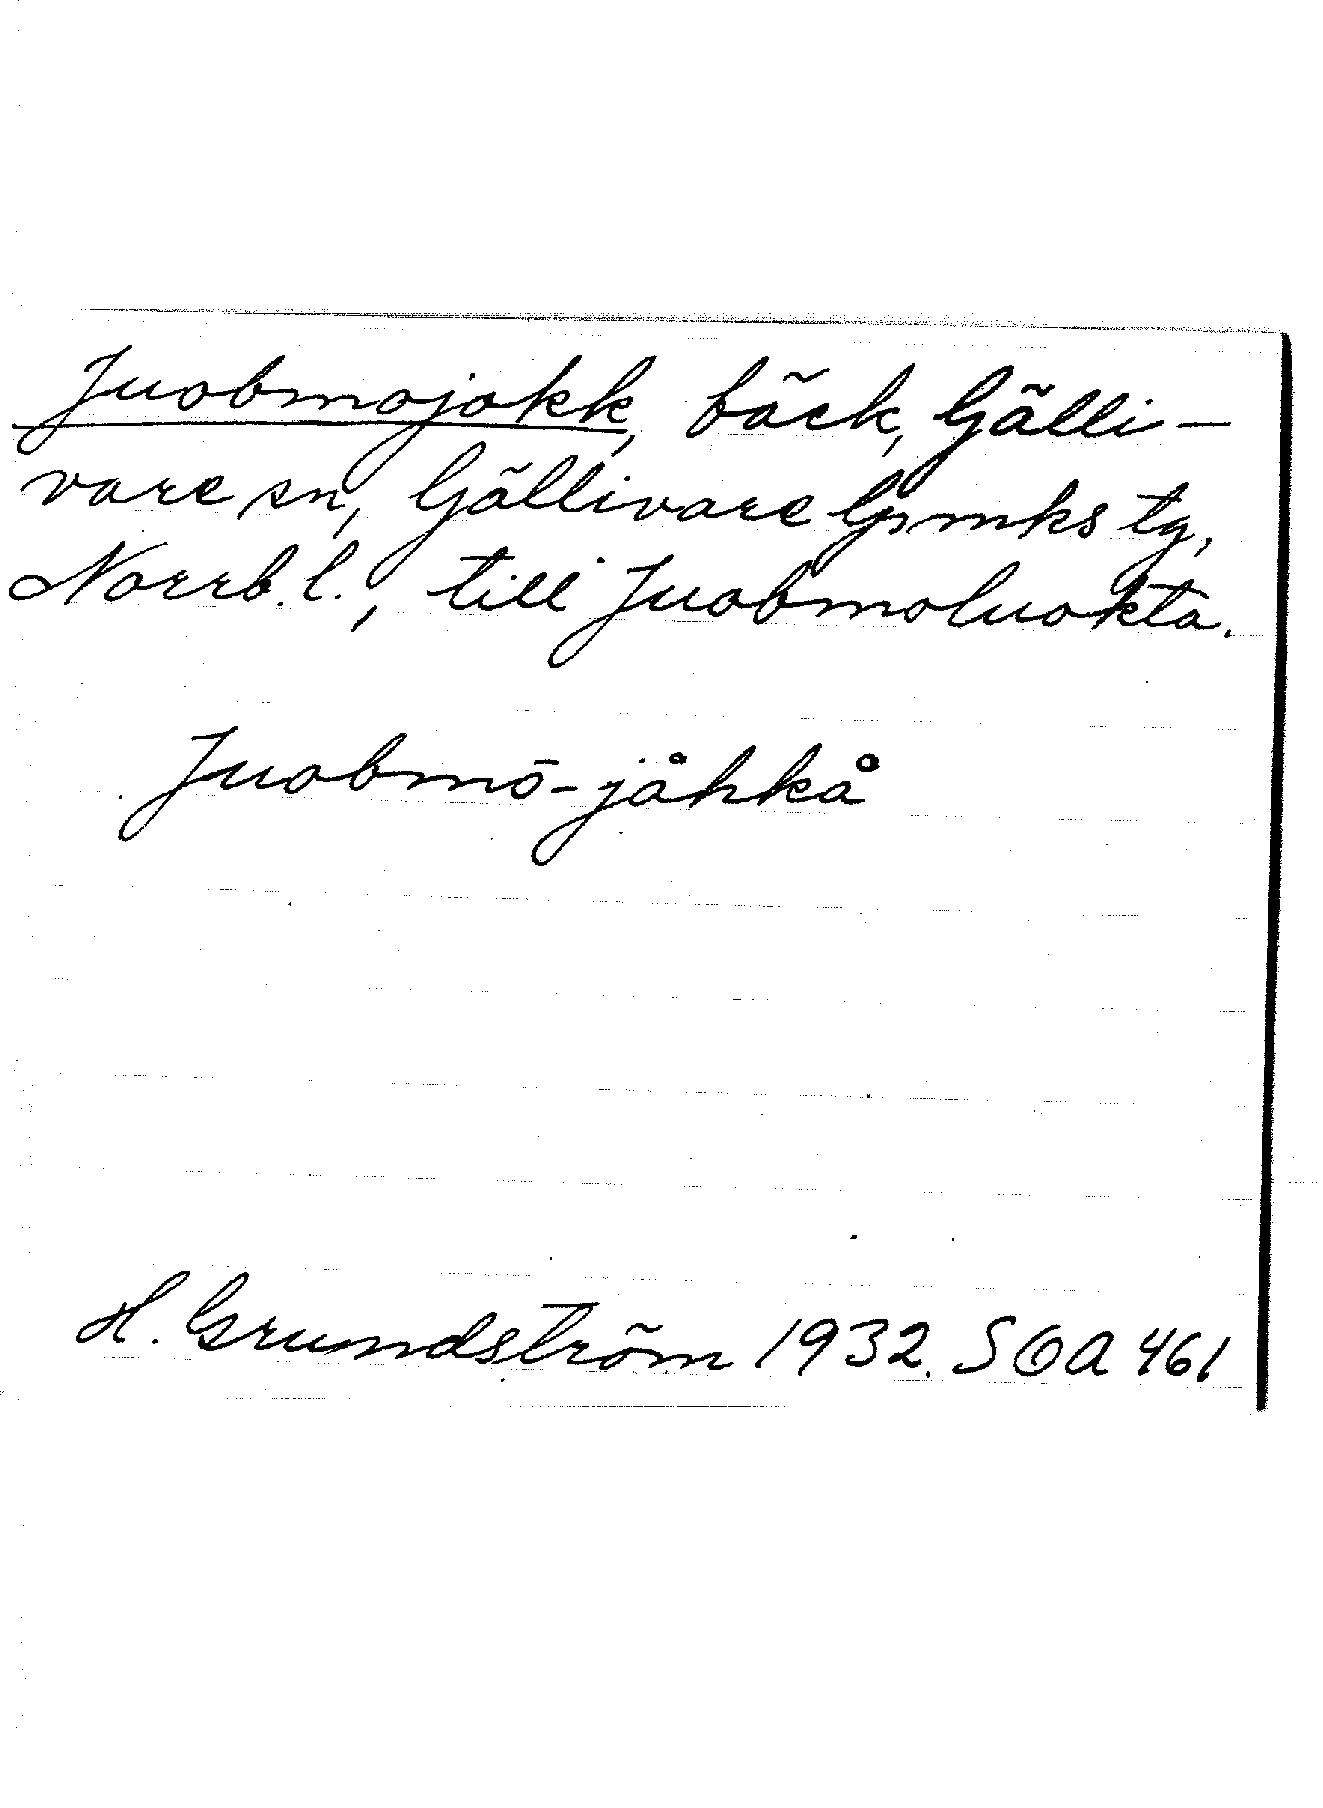 Juobmojokk, bäck, Gälli-
vare sn, Gällivare lpmks tg,
Norrb. l., till Juobmoluokta.
Juobmō-jåhkå
H. Grundström 1932. SOA 461